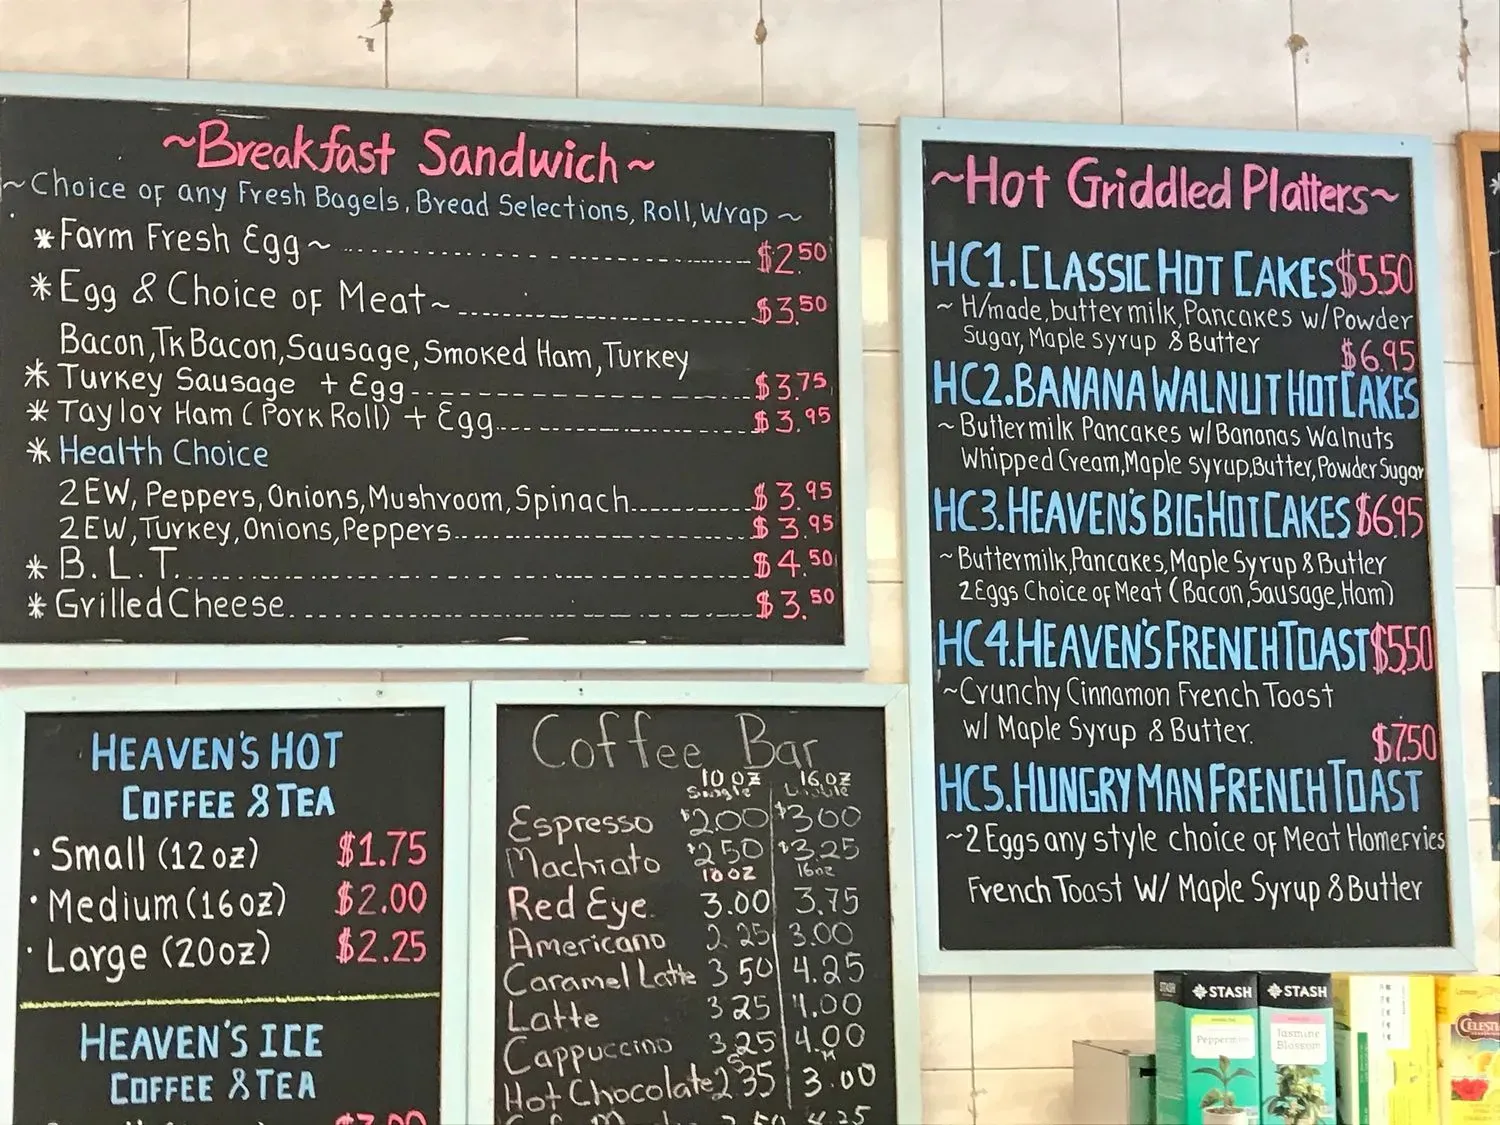 ~Breakfast Sandwich~
~Choice of any Fresh Bagels, Bread Selections, Roll, Wrap~
*Farm Fresh Egg~ $2.50
*Egg & Choice of Meat~ $3.50
Bacon, Tk Bacon, Sausage, Smoked Ham, Turkey
*Turkey Sausage + Egg $3.75
*Taylor Ham (Pork Roll) + Egg $3.95
*Health Choice
2EW, Peppers, Onions, Mushroom, Spinach $3.95
2EW, Turkey, Onions, Peppers $3.95
*B.L.T. $4.50
*Grilled Cheese $3.50
~Hot Griddled Platters~
HC1. CLASSIC HOT CAKES $5.50
~H/made, buttermilk, Pancakes w/ Powder
Sugar, Maple syrup & Butter
$6.95
HC2. BANANA WALNUT HOT CAKES
~Buttermilk Pancakes w/ Bananas Walnuts
Whipped Cream, Maple syrup, Butter, Powder Sugar
HC3. HEAVEN'S BIG HOT CAKES $6.95
~Buttermilk, Pancakes, Maple Syrup & Butter
2 Eggs Choice of Meat (Bacon, Sausage, Ham)
HC4. HEAVEN'S FRENCH TOAST $5.50
~Crunchy Cinnamon French Toast
w/ Maple Syrup & Butter.
$7.50
HC5. HUNGRY MAN FRENCH TOAST
~2 Eggs any style choice of Meat Homefries
French Toast W/ Maple Syrup & Butter
HEAVEN'S HOT
COFFEE & TEA
·Small (12oz) $1.75
·Medium (16oz) $2.00
·Large (20oz) $2.25
HEAVEN'S ICE
COFFEE & TEA
Coffee Bar
10 oz 16 oz
Single
Espresso $2.00 $3.00
Machiato $2.50 $3.25
10 oz 16oz
Red Eye 3.00 3.75
Americano 2.25 3.00
Caramel Latte 3.50 4.25
Latte 3.25 4.00
Cappuccino 3.25 4.00
Hot Chocolate 2.35 3.00
4.25
STASH
Peppermint
STASH
Jasmine
Blossom